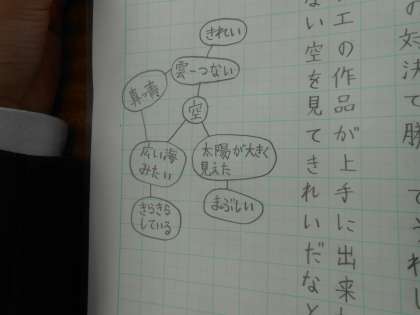 の対決で勝ってうれし
工の作品が上手に出来
ない空を見てきれいだなと
きれい
雲一つない
真っ青
空
広い海
みたい
太陽が大きく
見えた
きらきら
している
まぶしい